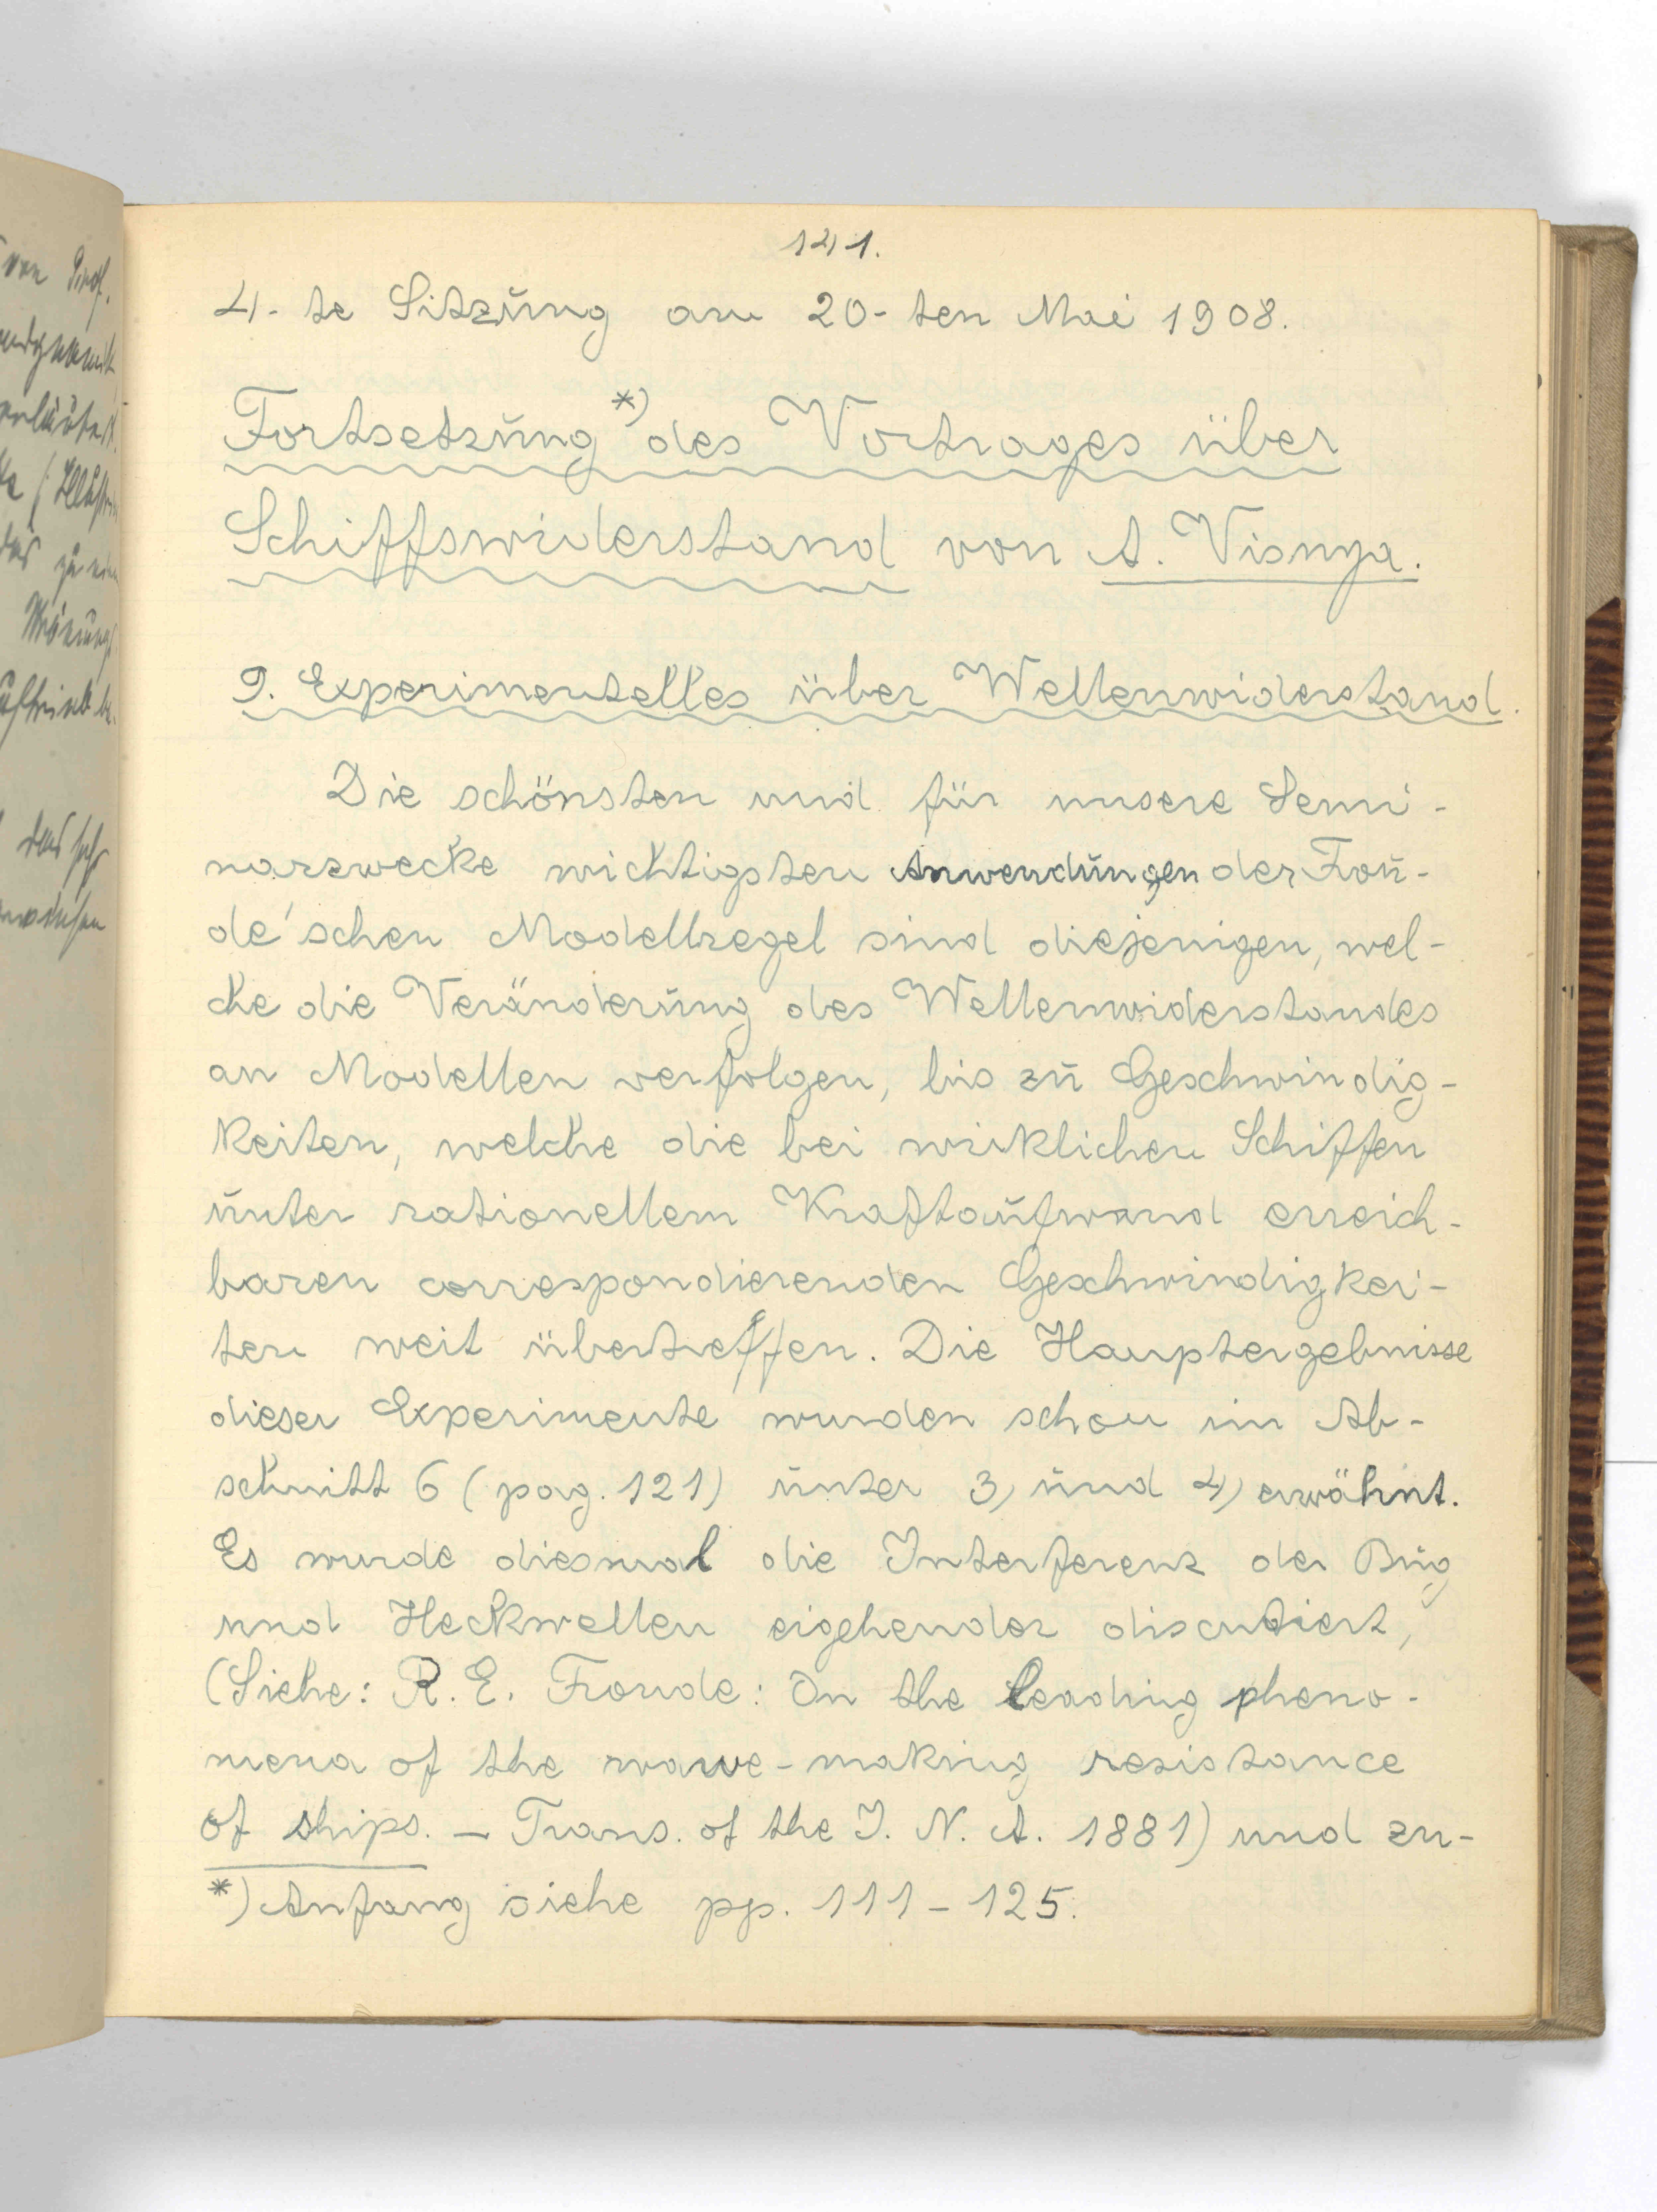 141.
4-te Sitzung am 20-ten Mai 1908.
Fortsetzung *) des Vortrages über
Schiffswiderstand von A. Visnya.
9. Experimentelles über Wellenwiderstand.
Die schönsten und für unsere Semi-
narzwecke wichtigsten Anwendungen der Frou-
de'schen Modellregel sind diejenigen, wel-
che die Veränderung des Wellenwiderstandes
an Modellen verfolgen, bis zu Geschwindig-
keiten, welche die bei wirklichen Schiffen
unter rationellem Kraftaufwand erreich-
baren correspondierenden Geschwindigkei-
ten weit übertreffen. Die Hauptergebnisse
dieser Experimente wurden schon im Ab-
schnitt 6 (pag. 121) unter 3) und 4) erwähnt.
Es wurde diesmal die Interferenz der Bug
und Heckwellen eigehender discutiert,
(Siehe: R. E. Froude: On the leading pheno-
mena of the wawe-making resistance
of ships. – Trans. of the I. N. A. 1881) und zu-
*) Anfang siehe pp. 111-125.
von Prof.